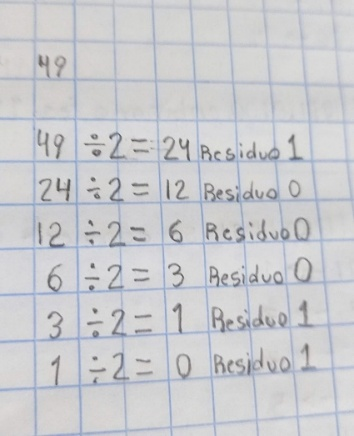 49
49 ÷ 2 = 24 Residuo 1
24 ÷ 2 = 12 Residuo 0
12 ÷ 2 = 6 Residuo 0
6 ÷ 2 = 3 Residuo 0
3 ÷ 2 = 1 Residuo 1
1 ÷ 2 = 0 Residuo 1